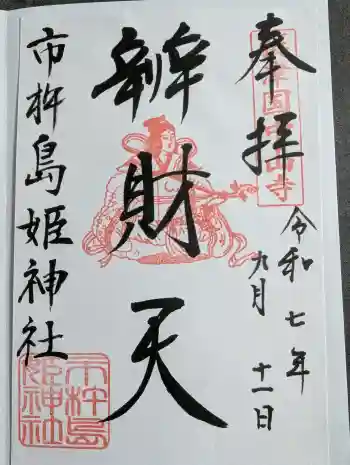 奉拝
令和七年
九月十一日
辨財天
市杵島姫神社
市杵島
姫神社